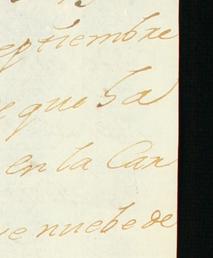 septiembre
que ha
en la Can
nuebe de